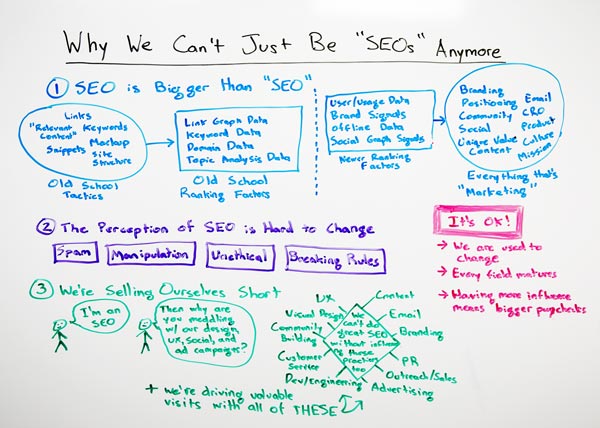 Why We Can't Just Be "SEOs" Anymore
① SEO is Bigger than "SEO"
Links
"Relevant Keywords
Content" Markup
Snippets Site
Structure
Old School
Tactics
Link Graph Data
Keyword Data
Domain Data
Topic Analysis Data
Old School
Ranking Factors
User/Usage Data
Brand Signals
Offline Data
Social Graph Signals
Newer Ranking
Factors
Branding
Positioning Email
Community CRO
Social Product
Unique Value Culture
Content Mission
Everything that's
"Marketing"
② The Perception of SEO is Hard to Change
Spam
Manipulation
Unethical
Breaking Rules
It's OK!
→ We are used to
change
→ Every field matures
→ Having more influence
means bigger paychecks
③ We're Selling Ourselves Short
I'm an
SEO
Then why are
you meddling
w/ our design,
UX, social, and
ad campaigns?
UX
Content
Visual Design
Email
Community
Building
Branding
Customer
Service
PR
Dev/Engineering
Outreach/Sales
Advertising
We
can't do
great SEO
without influencing
these
practices
too
+ we're driving valuable
visits with all of THESE